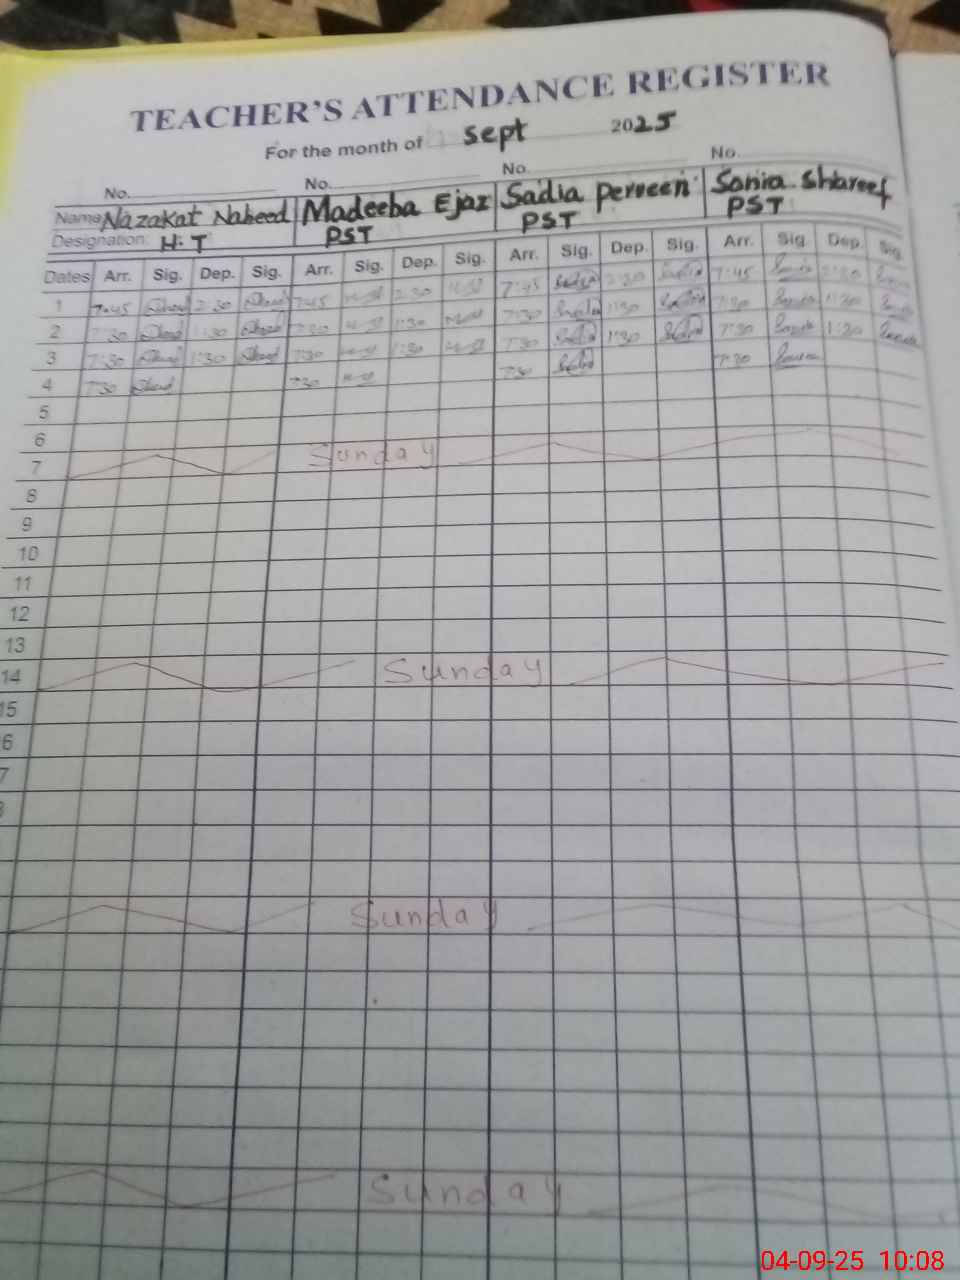 TEACHER'S ATTENDANCE REGISTER
For the month of Sept 2025
No. No. No. No.
Name Nazakat Naheed Madeeba Ejaz Sadia Perveen Sonia Shareef
Designation: H.T PST PST PST
Dates Arr. Sig. Dep. Sig. Arr. Sig. Dep. Sig. Arr. Sig. Dep. Sig. Arr. Sig. Dep. Sig.
1 7:45 2:30 7:45 2:30 7:45 2:30 7:45 2:30
2 7:30 1:30 7:30 1:30 7:30 1:30 7:30 1:30
3 7:30 1:30 7:30 1:30 7:30 1:30 7:30 1:30
4 7:30 7:30 7:30 7:30
5
6
7 Sunday
8
9
10
11
12
13
14 Sunday
15
6
7
Sunday
Sunday
04-09-25 10:08